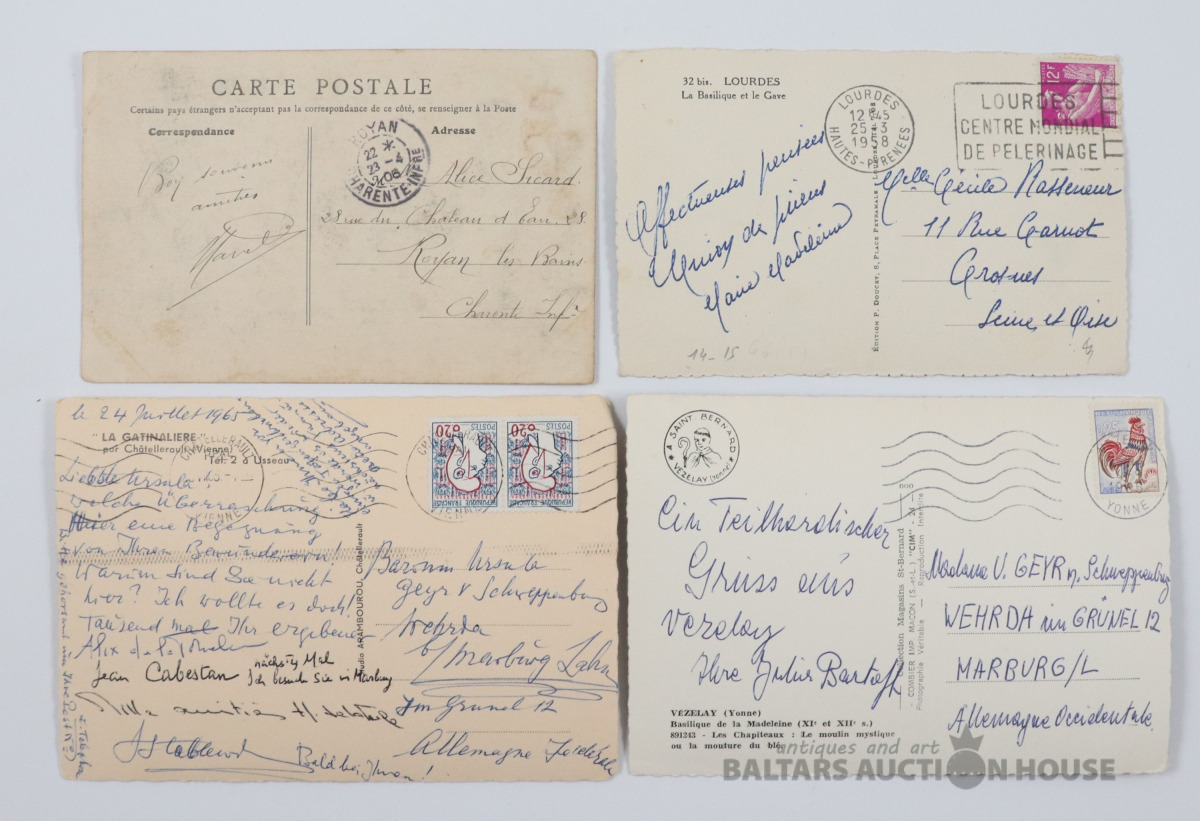 CARTE POSTALE
Certains pays étrangers n'acceptant pas la correspondance de ce côté, se renseigner à la Poste
Correspondance
Adresse
ROYAN
22 *
23 - 4
06
CHARENTE-INFRE
souvenir
amitiés
Alice Sicard
28 rue du Chateau d'Eau. 28
Royan les Bains
Charente Infre
32 bis. LOURDES
La Basilique et le Gave
LOURDES
12 H 45
25 - 3
HAUTES-PYRENEES
12F
LOURDES
CENTRE MONDIAL
DE PELERINAGE
Affectueuses pensées
Union de prières
Marie Madeleine
Melle Cécile Rasseneur
11 Rue Carnot
Crosnes
Seine et Oise
EDITION P. DOUCET, 8, PLACE PEYRAMALE
14-15
le 24 Juillet 1965
"LA GATINALIERE"
par Châtellerault (Vienne)
Tél. 2 à Usseau
Liebste Ursula
welche Überraschung
Hier eine Begegnung
von Ihren Bewunderern!
Warum sind Sie nicht
hier? Ich wollte es doch
tausend mal Ihr ergebener
Jean Cabestan
nächsty Mal
Ich besuche Sie in Marburg
Bald bei Ihnen!
Studio ARAMBOUROU, Châtellerault
0,20
POSTES
REPUBLIQUE FRANÇAISE
0,20
POSTES
REPUBLIQUE FRANÇAISE
VIENNE
Baronin Ursula
Geyr v Schweppenburg
Wehrda
b/Marburg Lahn
Im Grünel 12
Allemagne
* A SAINT BERNARD *
VEZELAY (Yonne)
YONNE
Ein Teilhardischer
Gruss aus
Vezelay
Ihre Julius Bartoff
Collection Magasins St-Bernard
COMBIER IMP. MACON (S.-et-L.) "CIM"
Photographie Véritable - Reproduction Interdite
Madame V. GEYR n. Schweppenburg
WEHRDA im GRÜNEL 12
MARBURG/L
Allemagne Occidentale
VÉZELAY (Yonne)
Basilique de la Madeleine (XIe et XIIe s.)
891243 - Les Chapiteaux : Le moulin mystique
ou la mouture du blé
antiques and art
BALTARS AUCTION HOUSE